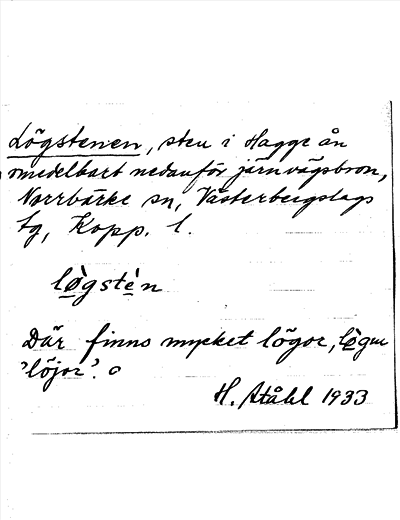 Lögstenen, sten i Hagge ån
omedelbart nedanför järnvägsbron,
Norrbärke sn, Västerbergslags
tg, Kopp. l.
lø̀gstè̩n
Där finns mycket lögor, lø̀gur
'löjor'.
H. Ståhl 1933